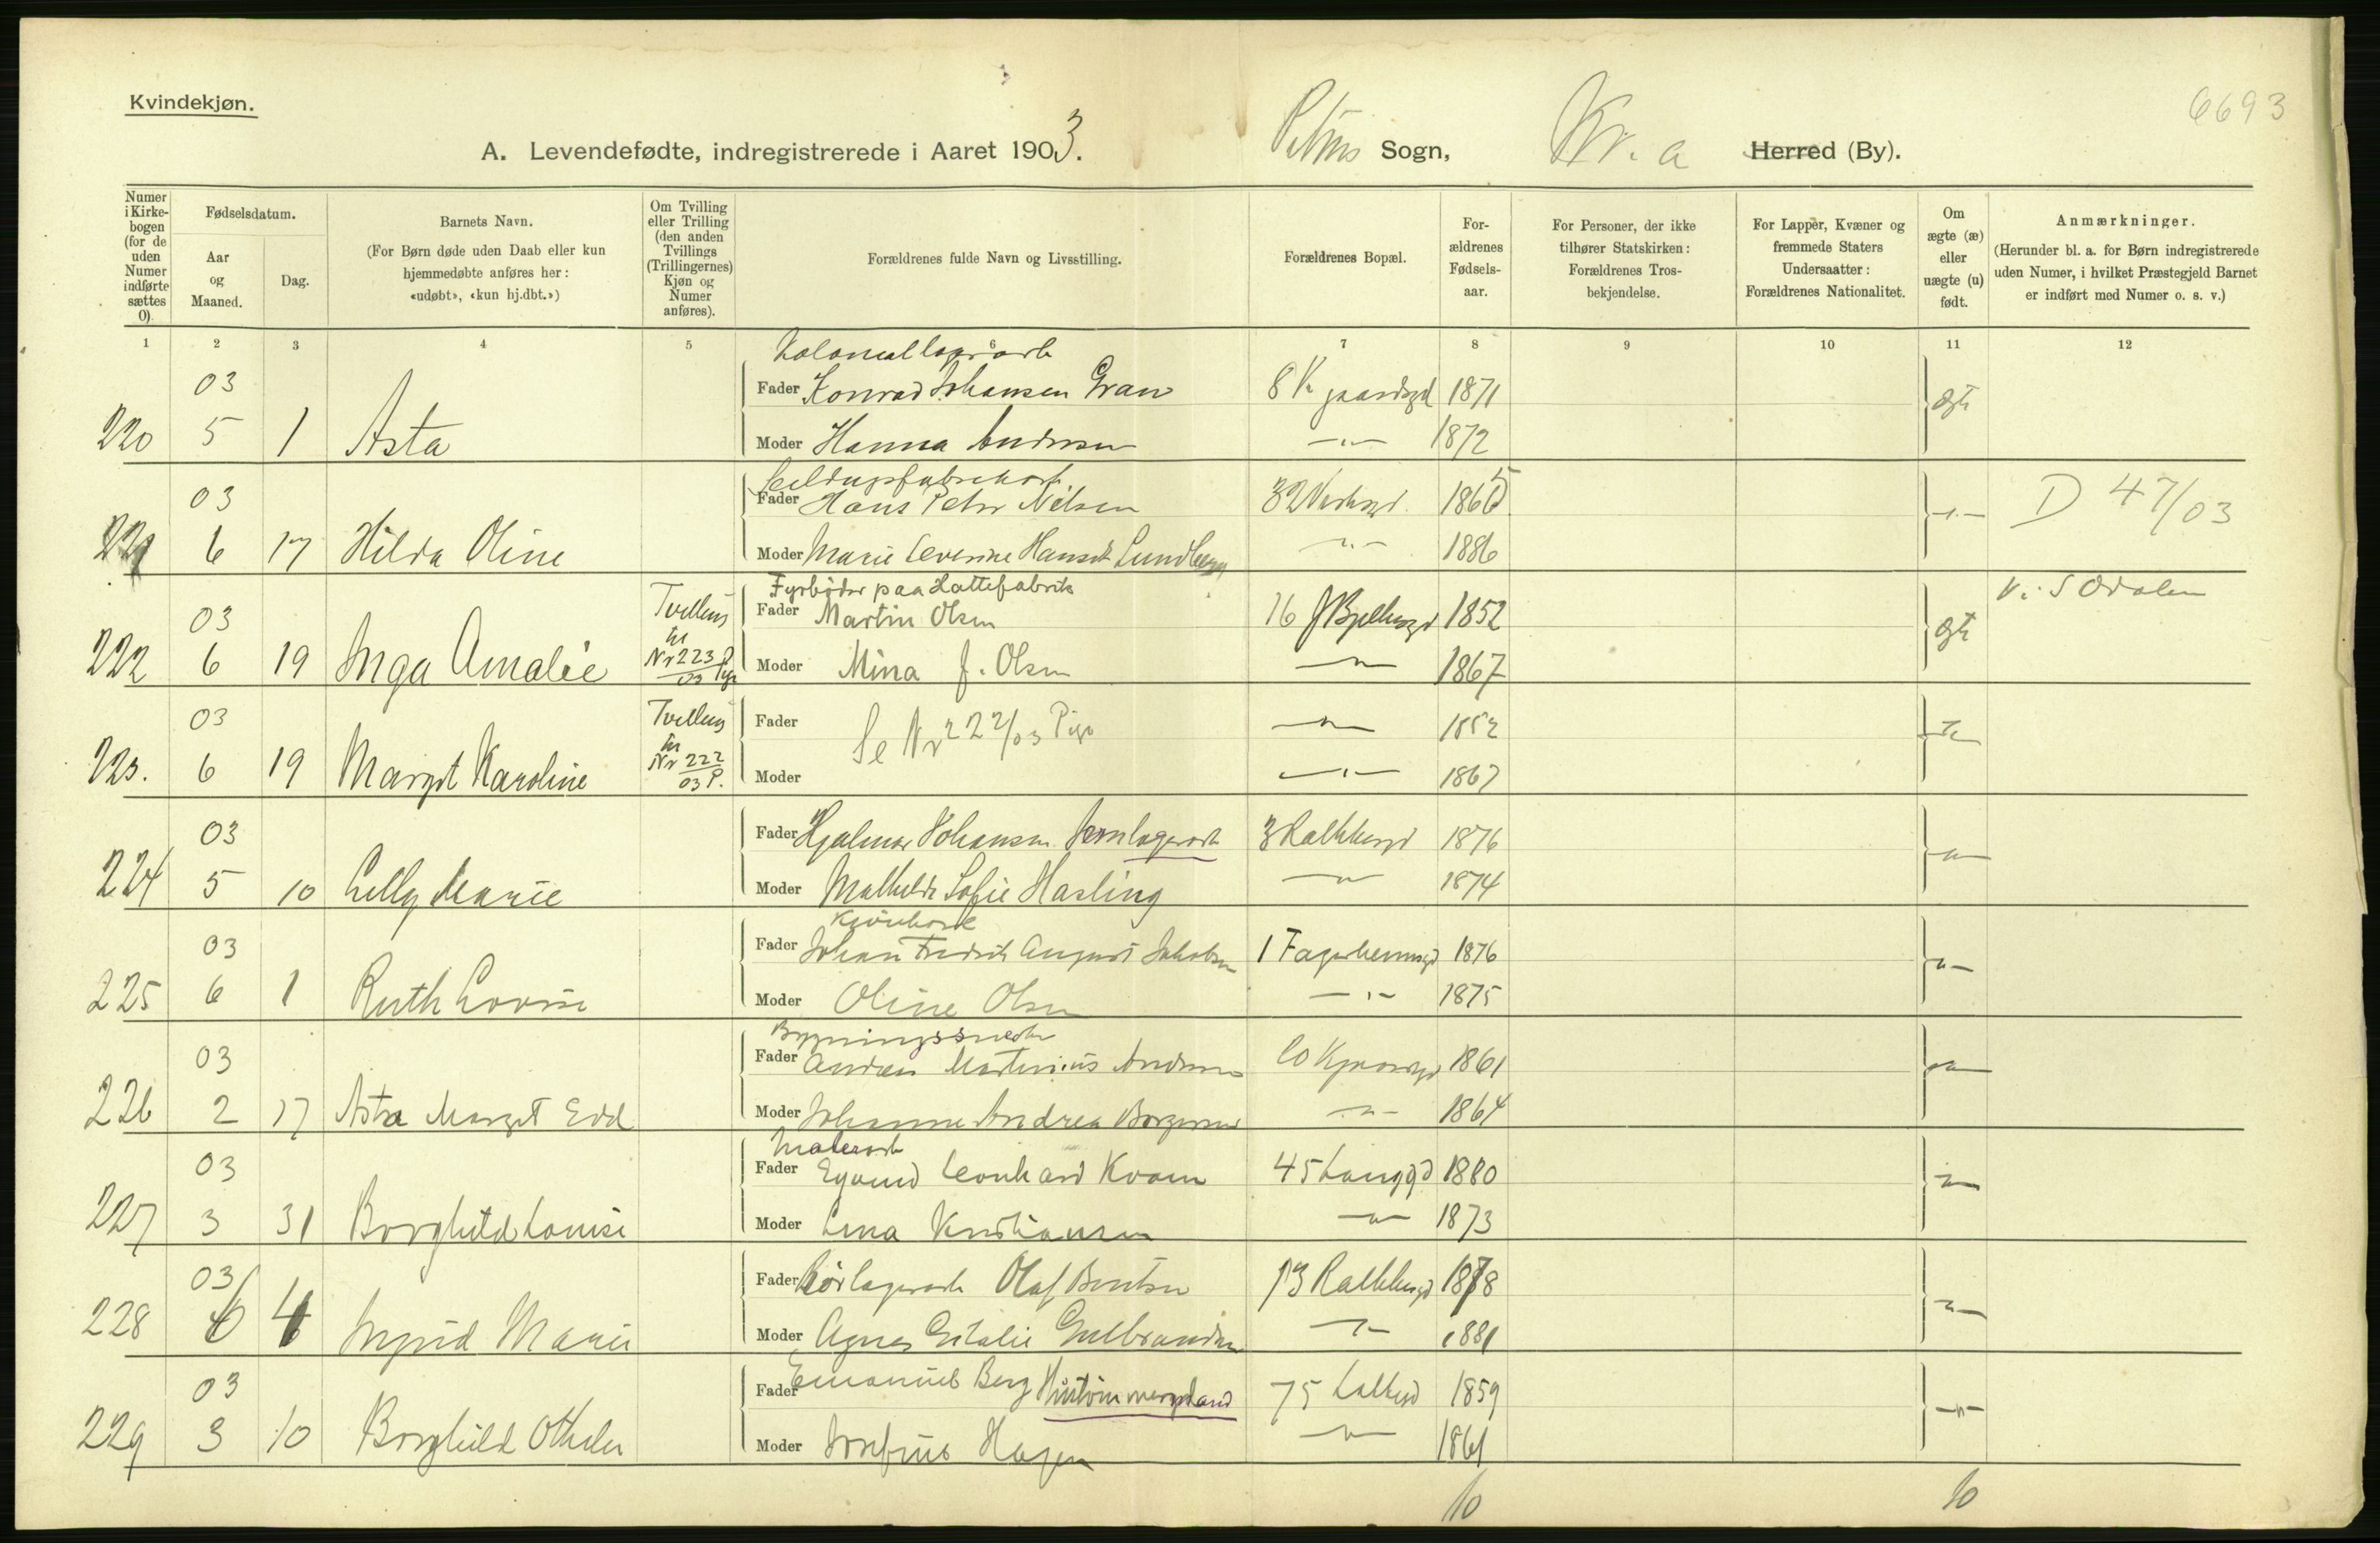 Kvindekjøn.
6693
A. Levendefødte, indregistrerede i Aaret 1903. Petrus Sogn, Kr.a Herred (By).
Numer i Kirkebogen (for de uden Numer indførte sættes 0).
Fødselsdatum.
Aar og Maaned.
Dag.
Barnets Navn.
(For Børn døde uden Daab eller kun hjemmedøbte anføres her: «udøbt», «kun hj.dbt.»)
Om Tvilling eller Trilling (den anden Tvillings (Trillingernes) Kjøn og Numer anføres).
Forældrenes fulde Navn og Livsstilling.
Forældrenes Bopæl.
Forældrenes Fødselsaar.
For Personer, der ikke tilhører Statskirken: Forældrenes Trosbekjendelse.
For Lapper, Kvæner og fremmede Staters Undersaatter: Forældrenes Nationalitet.
Om ægte (æ) eller uægte (u) født.
Anmærkninger.
(Herunder bl. a. for Børn indregistrerede uden Numer, i hvilket Præstegjeld Barnet er indført med Numer o. s. v.)
1 2 3 4 5 6 7 8 9 10 11 12
Koloniallagerarb
03 Fader Konrad Johansen Gran 8 K gaardsgd 1871 Ægte
220 5 1 Asta Moder Hanna Andersen —"— 1872
03 Fader Hans Peter Nilsen 32 1865 —"— D 47/03
221 6 17 Hilda Oline Moder Marie Severine Hansdt Lundberg —"— 1886
Fyrbøder paa Hattefabrik V. S Odalen
03 Tvilling Fader Martin Olsen 16 1852 Ægte
222 6 19 Inga Amalie til Nr 223/03 Pige Moder Mina J. Olsen —"— 1867
03 Tvilling Fader Se Nr 222/03 Pige —"— 1852 —"—
223. 6 19 Margit Karoline til Nr 222/03 P. Moder —"— 1867
03 Fader Hjalmar Johansen Jernlagerarb 3 Ralkbergd 1876 —"—
224 5 10 Lilly Marie Moder Mathilde Sofie Hasling —"— 1874
03 Fader Johan Fredrik August Jakobsen 1 Fagerheimsgd 1876 —"—
225 6 1 Ruth Lovise Moder Oline Olsen —"— 1875
Bygningssnedker
03 Fader Andreas Martinius Andersen 1861 —"—
226 2 17 Asta Margit Moder Johanne Andrea Borgersen —"— 1864
Malerarb
03 Fader Eyvind Leonhard Kvam 45 Langgd 1880 —"—
227 3 31 Borghild Louise Moder Lina Kristiansen —"— 1873
03 Fader Olaf Bentsen 13 Ralkbergd 1878 —"—
228 6 4 Ingrid Marie Moder Agnes Gulbrandsen —"— 1881
03 Fader Emanuel Berg 75 1859 —"—
229 3 10 Borghild Moder Josefine Hagen —"— 1861
10 10